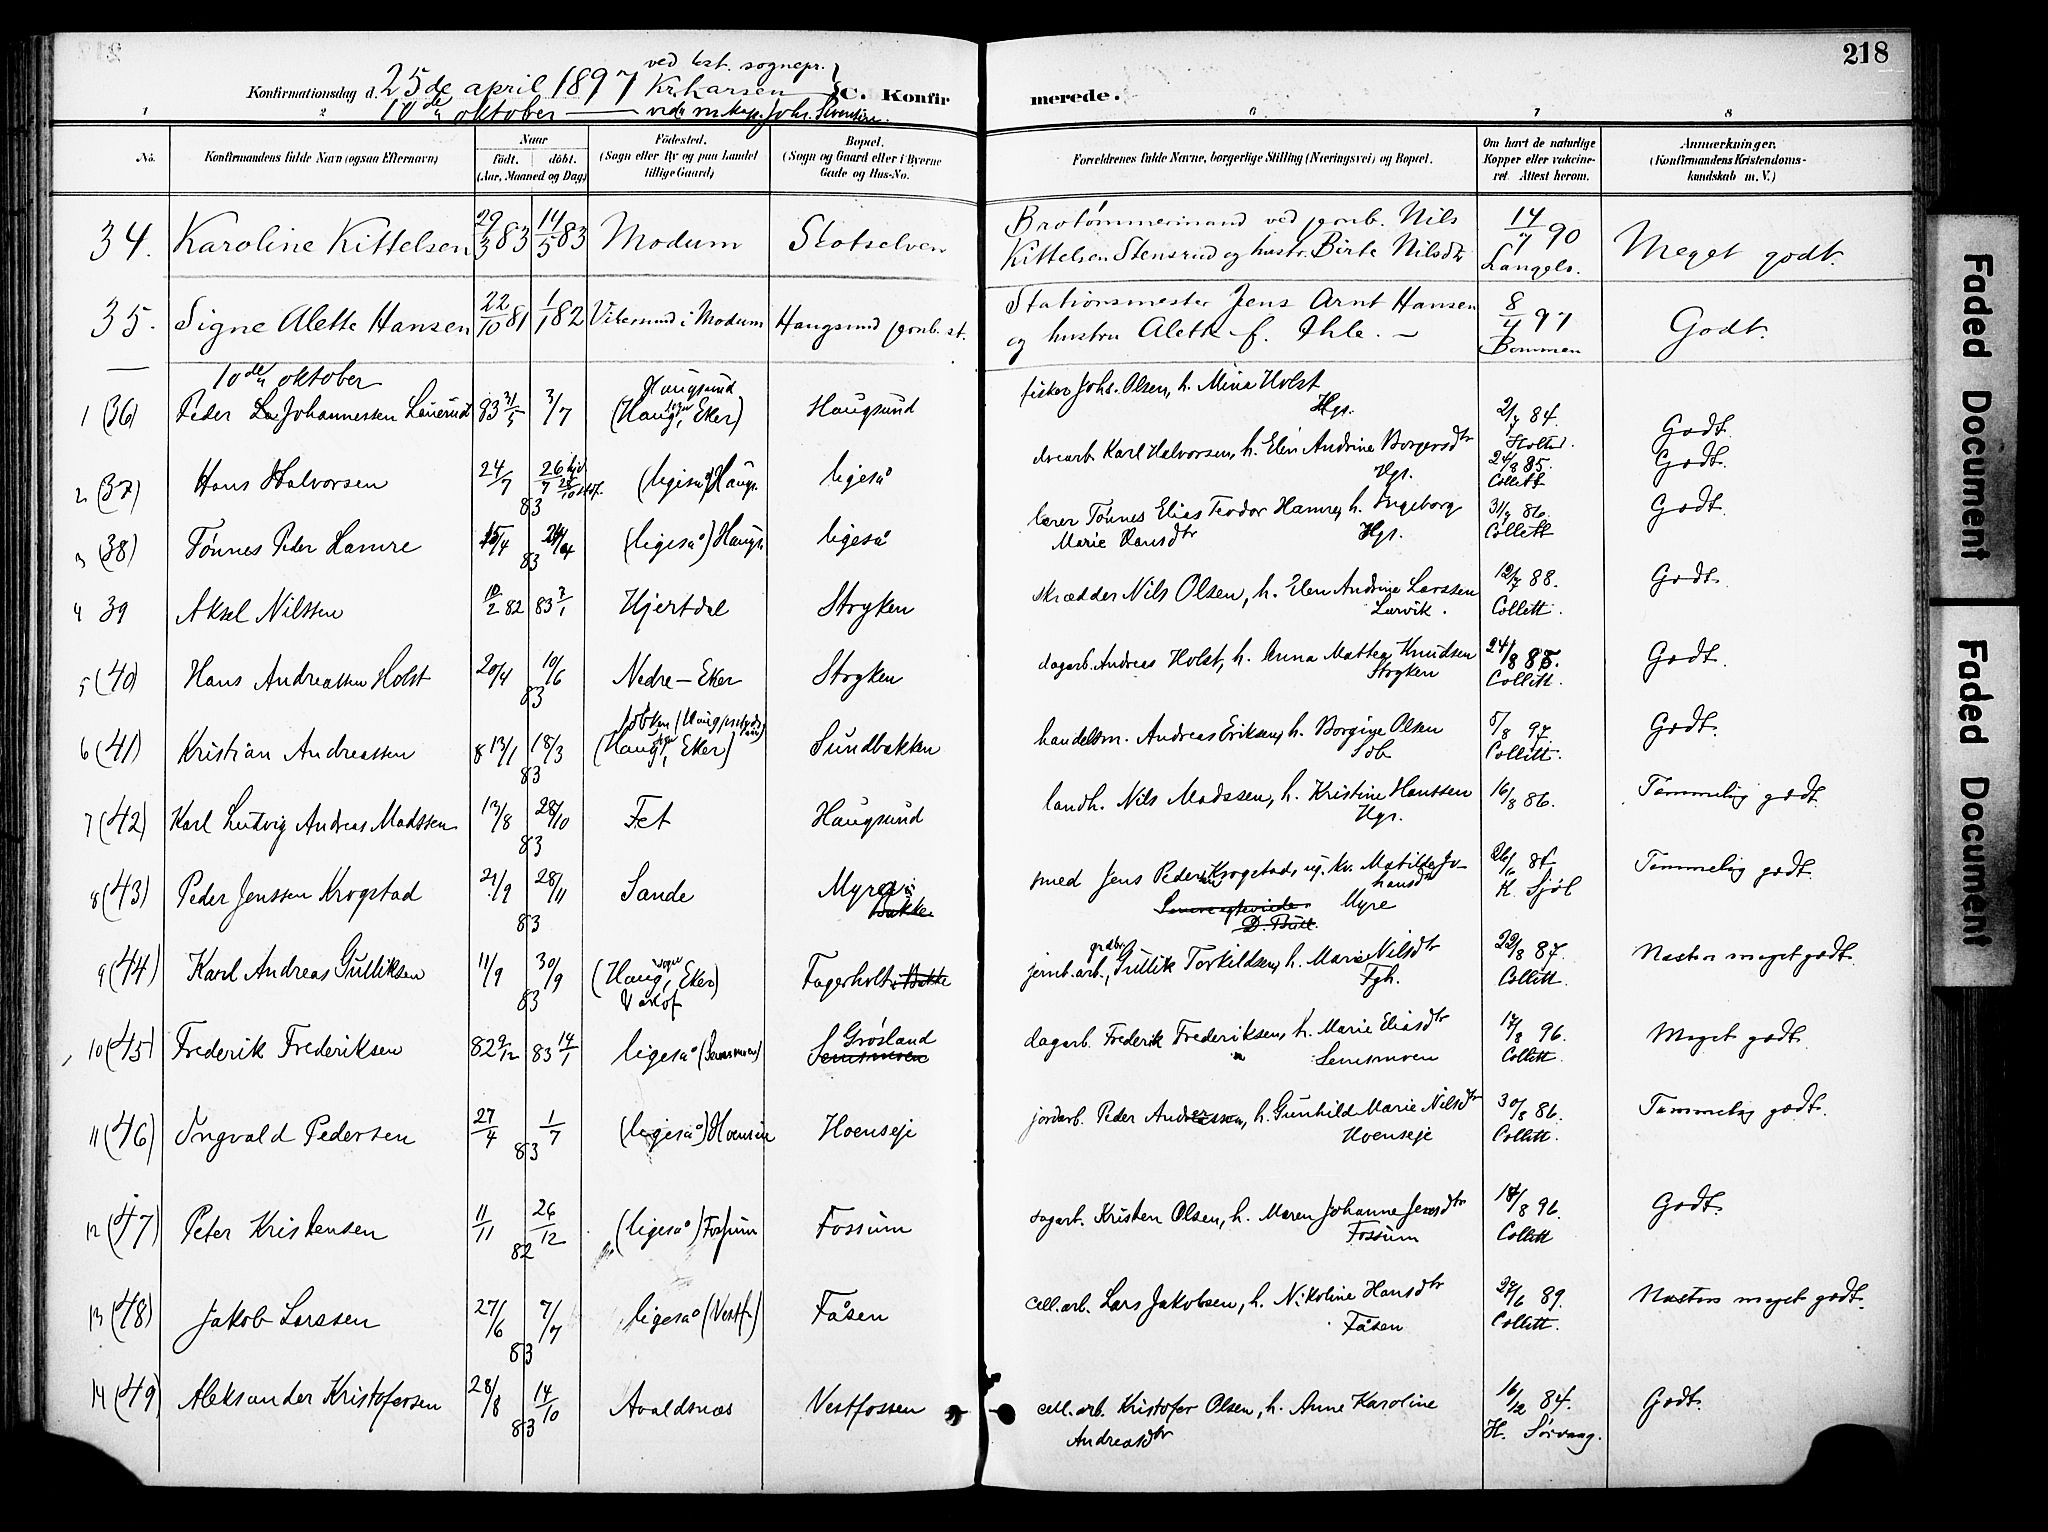 218
Konfirmationsdag d. 25de april 1897 ved kst. sognepr. Kr. Larsen C. Konfirmerede.
10de oktober
1 2 6 7 8
No. Konfirmandens fulde Navn (ogsaa Efternavn) Naar født. døbt. (Aar, Maaned og Dag) Fødested. (Sogn eller By og paa Landet tillige Gaard) Bopæl. (Sogn og Gaard eller i Byerne Gade og Hus-No. Forældrenes fulde Navne, borgerlige Stilling (Næringsvei) og Bopæl. Om havt de naturlige Kopper eller vaccineret. Attest herom. Anmærkninger. (Konfirmandens Kristendomskundskab m. V.)
34. Karoline Kittelsen 29/3 83 14/5 83 Modum Skotselven Brotømmermand ved jernb. Nils Kittelsen Stensrud og hustr. Birte Nilsdtr 14/7 90 Langels. Meget godt.
35. Signe Alette Hansen 22/10 81 1/1 82 Vikersund i Modum Haugsund jernb. st. Stationsmester Jens Arnt Hansen og hustru Alette f. Ihle. 8/4 97 Bommen Godt.
10de oktober
1 (36) Peder Johannessen 83 31/5 3/7 Haugsund (Haug sogn, Eker) Haugsund fisker Johs. Olsen, h. Mina Holst Hgs. 2/7 84. Godt.
2 (37) Hans Halvorsen 24/7 26/7 83 (ligeså) Haugs. ligeså Karl Halvorsen, h. Elen Andrine Borgersdtr Hgs. 24/8 85. Collett Godt.
3 (38) Tønnes Peder Hamre 15/4 83 (ligeså) Haugs. ligeså lærer Tønnes Elias Teodor Hamre, h. Ingeborg Marie Hansdtr Hgs. 31/7 86. Collett Godt.
4 39 Aksel Nilssen 10/2 82 83 7/1 Hjertdal Stryken skrædder Nils Olsen, h. Elen Andrine Larssen Larvik. 12/7 88. Collett. Godt.
5 (40) Hans Andreassen Holst 20/4 10/6 83 Nedre-Eker Stryken dagarb. Andreas Holst, h. Anna Mattea Knudsen Stryken 24/8 85. Collett. Godt.
6 (41) Kristian Andreassen 13/1 18/3 83 (Haug sogn, Eker) Sundbakken handelsm. Andreas Eriksen, h. Borgine Olsen Sob 5/8 97. Collett. Godt.
7 (42) Karl Ludvig Andreas Madssen 13/8 28/10 83 Fet Haugsund landh. Nils Madssen, h. Kristine Hanssen Hgs. 16/8 86. Tammelig godt.
8 (43) Peder Jenssen Krogstad 21/9 28/11 83 Sande Myre Bakke smed Jens Peder Krogstad, ug. kv. Matilde Johansdtr Myre 26/6 84 K. Sjøl Tammelig godt.
9 (44) Karl Andreas Gulliksen 11/9 30/9 83 (Haug sogn, Eker) Fagerholt jernb.arb. Gullik Torkildsen, h. Marie Nilsdtr Fgh. 22/8 87. Collett. Næsten meget godt.
10 (45) Frederik Frederiksen 82 9/12 83 14/1 ligeså (Semsmoen) S Grøsland Semsmoen dagarb. Frederik Frederiksen, h. Marie Eliasdtr Semsmoen 17/8 96. Collett. Meget godt.
11 (46) Ingvald Pedersen 27/4 1/7 83 (ligeså) Hoenseie Hoenseje jordarb. Peder Anderssen, h. Gunhild Marie Nilsdtr Hoenseje 30/8 86. Collett. Tammelig godt.
12 (47) Peter Kristensen 11/11 26/12 82 (ligeså) Fossum Fossum dagarb. Kristen Olsen, h. Maren Johanne Jensdtr Fossum 18/8 96. Collett Godt.
13 (48) Jakob Larssen 27/6 7/7 83 ligeså (Vestf.) Fåsen cell.arb. Lars Jakobsen, h. Nikoline Hansdtr Fåsen 27/6 89. Collett. Næsten meget godt.
14 (49) Aleksander Kristofersen 28/8 14/10 83 Avaldsnæs Vestfossen cell.arb. Kristofer Olsen, h. Anne Karoline Andreasdtr 16/12 84. H. Sørvaag. Godt.
Faded Document
Faded Document